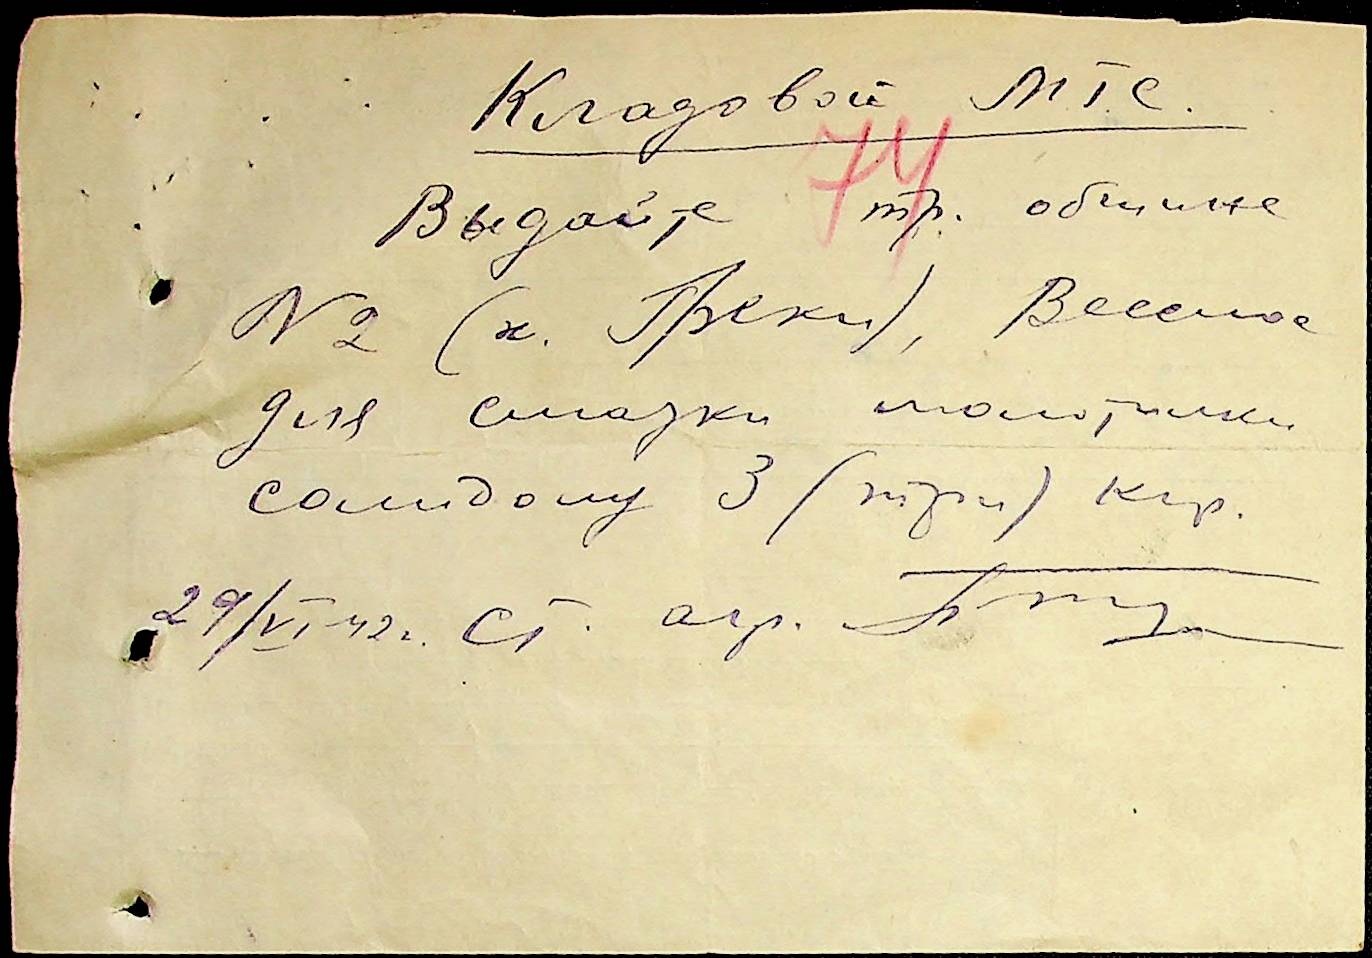 Кладовой МТС.
74
Выдайте тр. общине
№ 2 (х. Греки), Веселое
для смазки молотилки
солидолу 3 (три) кгр.
29/VI-42 г. Ст. агр.